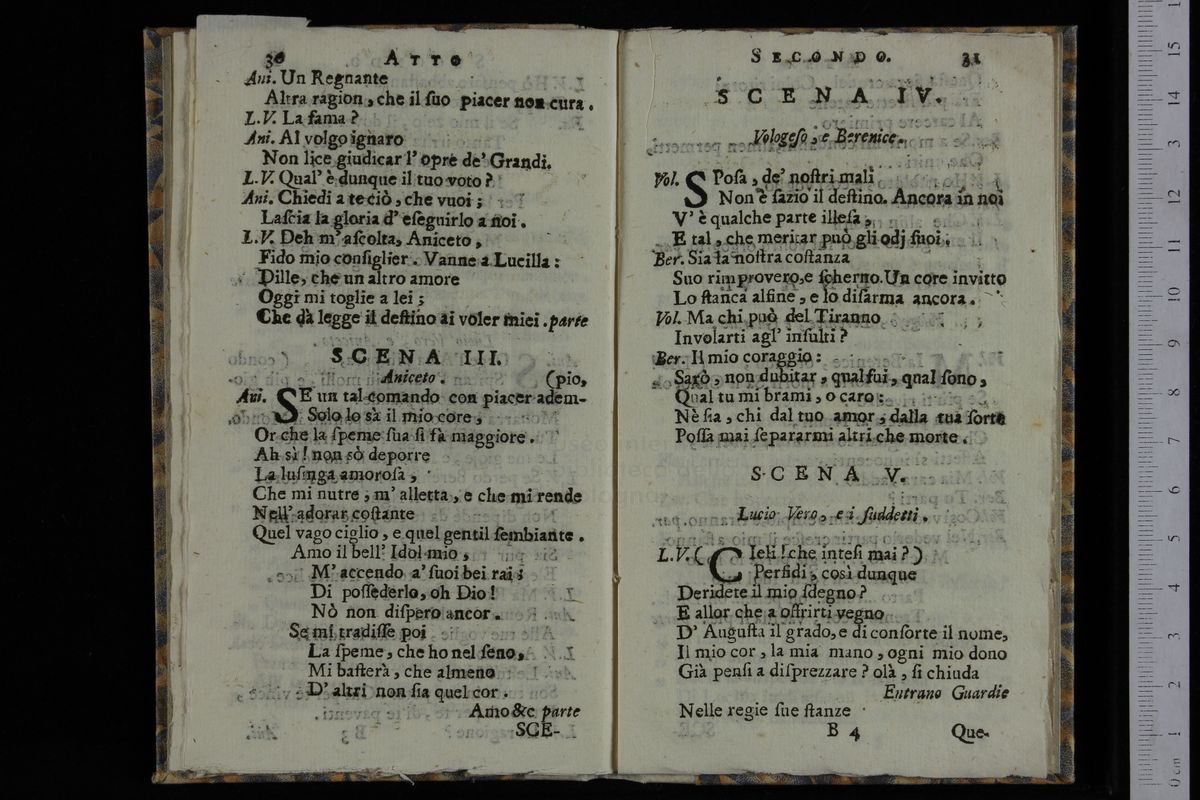 30 ATTO
Ani. Un Regnante
Altra ragion, che il ſuo piacer non cura.
L.V. La fama?
Ani. Al volgo ignaro
Non lice giudicar l' opre de' Grandi.
L.V. Qual' è dunque il tuo voto?
Ani. Chiedi a te ciò, che vuoi;
Laſcia la gloria d' eſeguirlo a noi.
L.V. Deh m' aſcolta, Aniceto,
Fido mio conſiglier. Vanne a Lucilla:
Dille, che un altro amore
Oggi mi toglie a lei;
Che dà legge il deſtino ai voler miei. parte
SCENA III.
Aniceto. (pio,
Ani. SE un tal comando con piacer adem-
Solo lo sà il mio core,
Or che la ſpeme ſua ſi fà maggiore.
Ah sì! non sò deporre
La luſinga amoroſa,
Che mi nutre, m' alletta, e che mi rende
Nell' adorar coſtante
Quel vago ciglio, e quel gentil ſembiante.
Amo il bell' Idol mio,
M' accendo a' ſuoi bei rai;
Di poſſederlo, oh Dio!
Nò non diſpero ancor.
Se mi tradiſſe poi
La ſpeme, che ho nel ſeno,
Mi baſterà, che almeno
D' altri non ſia quel cor.
Amo &c. parte
SCE-
SECONDO. 31
SCENA IV.
Vologeſo, e Berenice.
Vol. SPoſa, de' noſtri mali
Non è ſazio il deſtino. Ancora in noi
V' è qualche parte illeſa,
E tal, che meritar può gli odj ſuoi.
Ber. Sia la noſtra coſtanza
Suo rimprovero, e ſcherno. Un core invitto
Lo ſtanca alfine, e lo diſarma ancora.
Vol. Ma chi può del Tiranno
Involarti agl' inſulti?
Ber. Il mio coraggio:
Sarò, non dubitar, qual fui, qual ſono,
Qual tu mi brami, o caro:
Nè ſia, chi dal tuo amor, dalla tua ſorte
Poſſa mai ſepararmi altri che morte.
SCENA V.
Lucio Vero, e i ſuddetti.
L.V. (CIeli! che inteſi mai?)
Perfidi, così dunque
Deridete il mio ſdegno?
E allor che a offrirti vegno
D' Auguſta il grado, e di conſorte il nome,
Il mio cor, la mia mano, ogni mio dono
Già penſi a diſprezzare? olà, ſi chiuda
Entrano Guardie
Nelle regie ſue ſtanze
B 4 Que-